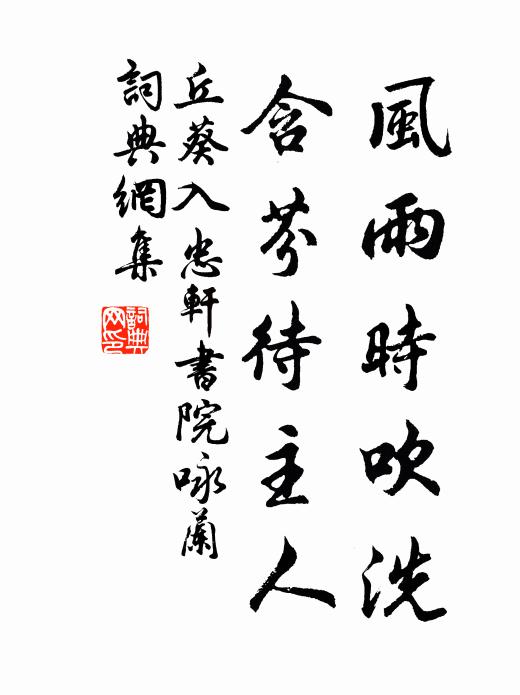 風雨時吹洗
含芬待主人
丘葵入忠軒書院咏蘭
詞典網集
詞典
网印